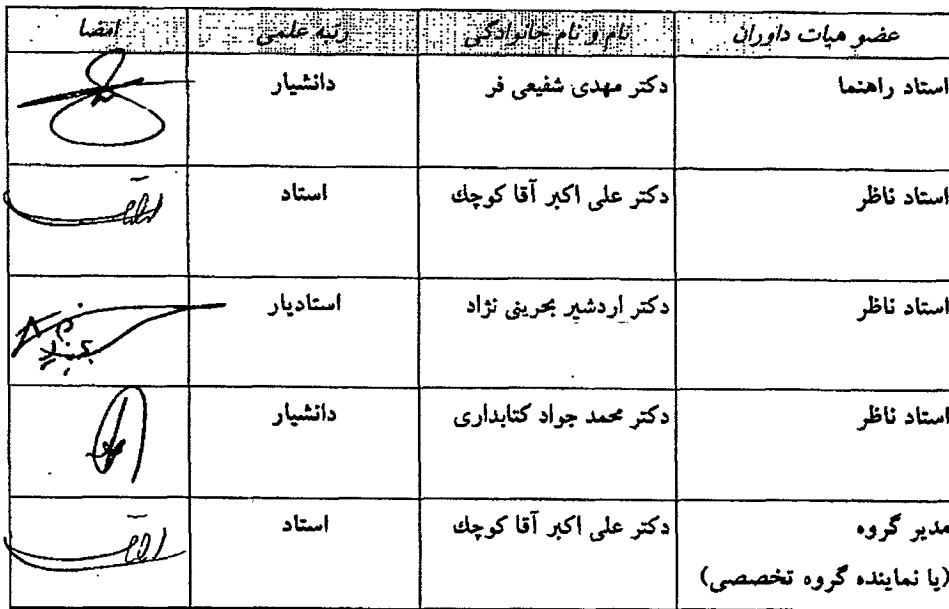 عضو هیات داوران نام و نام خانوادگی رتبه علمی امضا
استاد راهنما دکتر مهدی شفیعی فر دانشیار
استاد ناظر دکتر علی اکبر آقا کوچك استاد
استاد ناظر دکتر اردشیر بحرینی نژاد استادیار
استاد ناظر دکتر محمد جواد کتابداری دانشیار
مدیر گروه دکتر علی اکبر آقا کوچك استاد
(یا نماینده گروه تخصصی)